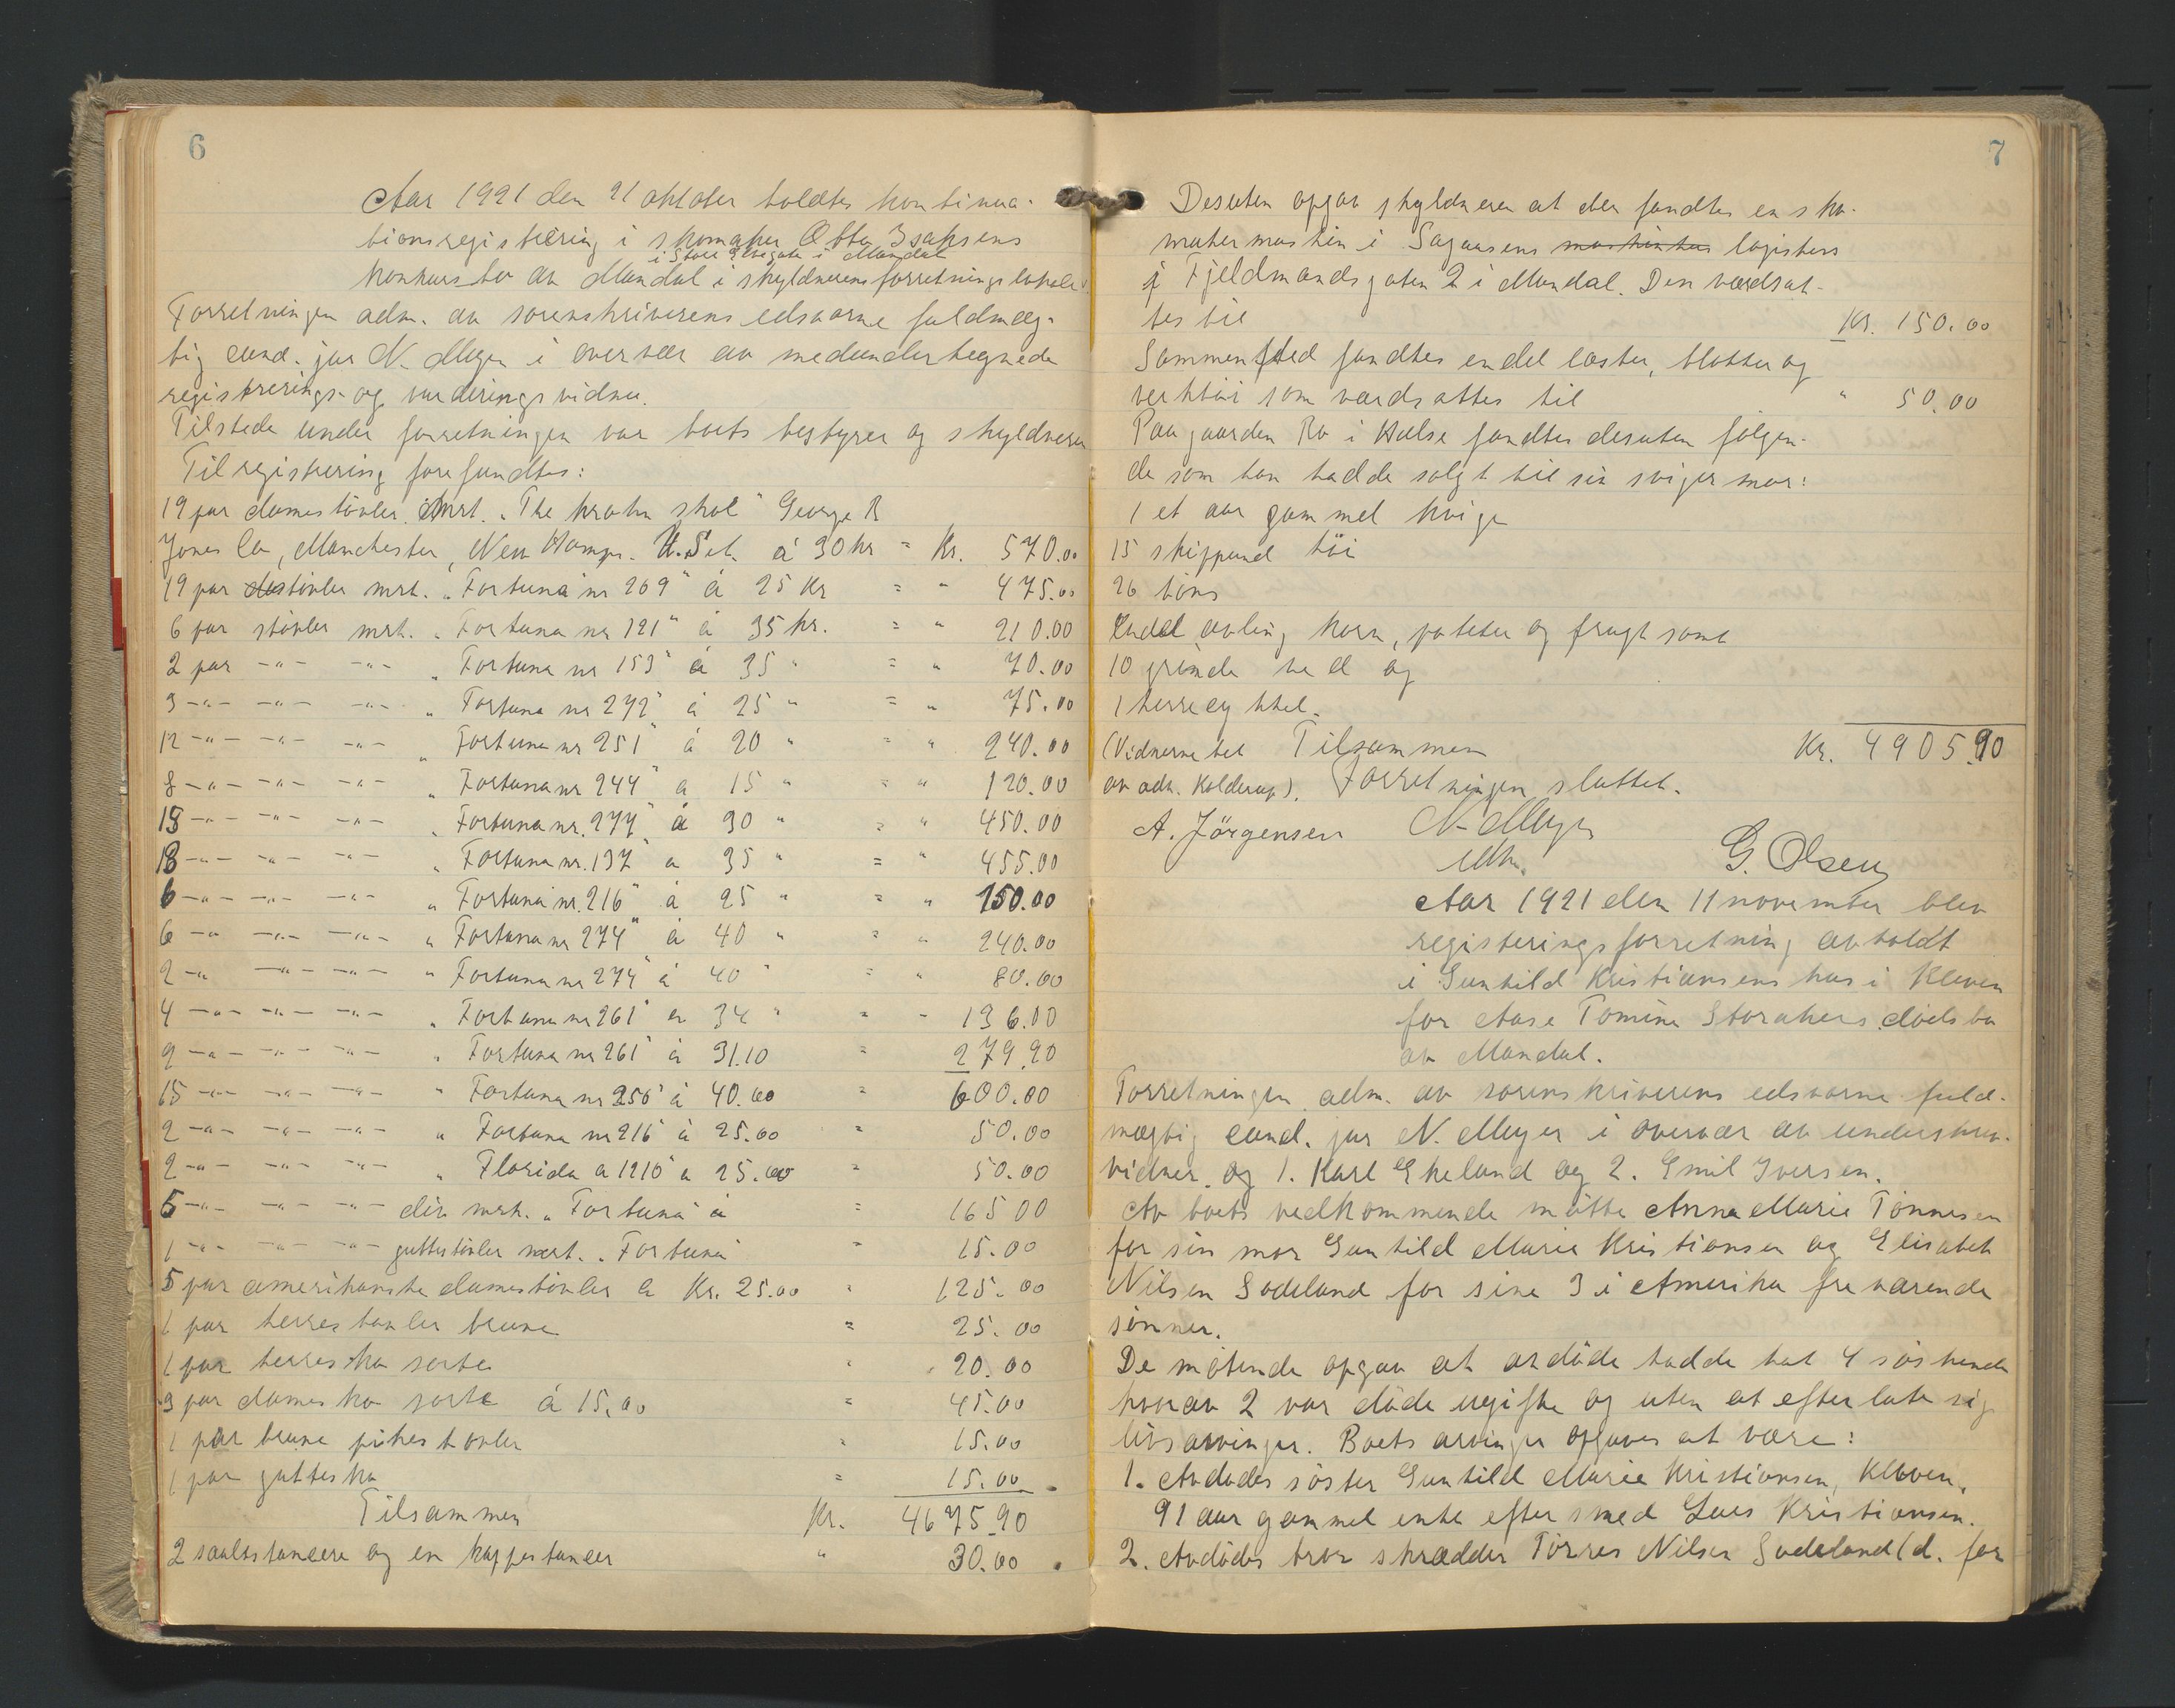 6
Aar 1921 den 21 oktober holdtes kontinua-
tionsregistrering i skomaker Otto Isaksens
i Store Elvegate i Mandal
konkursbo av Mandal i skyldnerens forretningslokale.
Forretningen adm. av sorenskriverens edsvorne fuldmæg-
tig cand. jur N. Meyer i overvær av medundertegnede
registrerings- og vurderingsvidner.
Tilstede under forretningen var boets bestyrer og skyldneren
Til registrering forefandtes:
19 par damestövler mrt. "The krohn shoe" George R
Jones Co, Manchester, New Hamps. U.S.A. á 30 kr = Kr. 570.00
19 par støvler mrk. "Fortuna nr 269" á 25 Kr = " 475.00
6 par stövler mrk. "Fortuna nr 121" á 35 kr. = " 210.00
2 par -"- -"- "Fortuna nr 153" á 35 " = " 70.00
3 -"- -"- -"- "Fortuna nr 272" á 25 " = " 75.00
12 -"- -"- -"- "Fortuna nr 251" á 20 " = " 240.00
8 -"- -"- -"- "Fortuna nr 244" a 15 " = " 120.00
15 -"- -"- -"- "Fortuna nr. 277" á 30 " = " 450.00
13 -"- -"- -"- "Fortuna nr. 137" a 35 " = " 455.00
6 -"- -"- -"- "Fortuna nr. 216" á 25 " = " 150.00
6 -"- -"- -"- "Fortuna nr 274" á 40 " = " 240.00
2 -"- -"- -"- "Fortuna nr 274" á 40 " = " 80.00
4 -"- -"- -"- "Fortuna nr 261" a 34 " = " 136.00
9 -"- -"- -"- "Fortuna nr 261" á 31.10 = 279.90
15 -"- -"- -"- "Fortuna nr 256" á 40.00 = 600.00
2 -"- -"- -"- "Fortuna nr 216" á 25.00 = 50.00
2 -"- -"- -"- "Florida a 1210" a 25.00 = 50.00
5 -"- -"- -"- div. mrk. "Fortuna" á = 165 00
1 -"- -"- -"- guttestövler mrk. "Fortuna" = 15.00
5 par amerikanske damestövler a Kr. 25.00 " 125.00
1 par herrestövler brune = 25.00
1 par herresko sorte " 20.00
3 par damesko sorte á 15.00 = 45.00
1 par brune pikestövler " 15.00
1 par guttesko = 15.00
Tilsammen Kr. 4675.90
2 saalestansere og en kappestanser " 30.00
7
Desuten opgav skyldneren at der fandtes en sko-
makermaskin i Sagaasens maskinhus logishus
i Fjeldmandsgaten 2 i Mandal. Den værdsat-
tes til Kr. 150.00
Sammensted fandtes endel læster, blokker og
verktöi som værdsattes til " 50.00
Paa gaarden Ro i Halse fandtes desuten følgen-
de som han hadde solgt til sin svigermor:
1 et aar gammel kvige
15 skippund höi
26 höns
Endel avling korn, poteter og frugt samt
10 grinde ved og
1 herrecykkel.
(Vidnerne bet Tilsammen Kr. 4905.90
av adv. Kolderup). Forretningen sluttet.
A. Jörgensen N. Meyer
G. Olsen
Aar 1921 den 11 november blev
registeringsforretning avholdt
i Gunhild Kristiansens hus i Kleven
for Aase Tomine Storakers dödsbo
av Mandal.
Forretningen adm. av sorenskriverens edsvorne fuld-
mægtig cand. jur N. Meyer i overvær av underskrev.
vidner og 1. Karl Ekeland og 2. Emil Iversen.
Av boets vedkommende mötte Anna Marie Tönnesen
for sin mor Gunhild Marie Kristiansen og Elisabet
Nilsen Sodeland for sine 3 i Amerika fraværende
sönner.
De mötende opgav at avdöde hadde hat 4 söskende
hvorav 2 var döde ugifte og uten at efterlate sig
livsarvinger. Boets arvinger opgaves at være:
1. Avdödes söster Gunhild Marie Kristiansen, Kleven,
91 aar gammel enke efter smed Lars Kristiansen.
2. Avdödes bror skrædder Törres Nilsen Sodeland (d. for